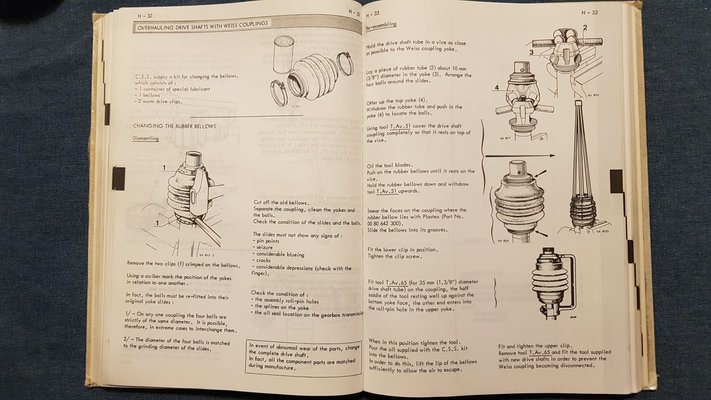 H - 32
OVERHAULING DRIVE SHAFTS WITH WEISS COUPLINGS
C.S.S. supply a kit for changing the bellows,
which consists of :
- 1 container of special lubricant
- 1 bellows
- 2 worm drive clips.
CHANGING THE RUBBER BELLOWS
Dismantling
1
1
Remove the two clips (1) crimped on the bellows.
Using a scriber mark the position of the yokes
in relation to one another.
In fact, the balls must be re-fitted into their
original yoke slides :
1/ - On any one coupling the four balls are
strictly of the same diameter. It is possible,
therefore, in extreme cases to interchange them.
2/ - The diameter of the four balls is matched
to the grinding diameter of the slides.
H - 32
Cut off the old bellows.
Separate the coupling, clean the yokes and
the balls.
Check the condition of the slides and the balls.
The slides must not show any signs of :
- pin points
- seizure
- considerable blueing
- cracks
- considerable depressions (check with the
finger).
Check the condition of :
- the assembly roll-pin holes
- the splines on the yoke
- the oil seal location on the gearbox transmission
In event of abnormal wear of the parts, change
the complete drive shaft.
In fact, all the component parts are matched
during manufacture.
H - 33
H - 33
Re-assembling
Hold the drive shaft tube in a vice as close
as possible to the Weiss coupling yoke.
Lay a piece of rubber tube (2) about 10 mm
(3/8") diameter in the yoke (3). Arrange the
four balls around the slides.
Offer up the top yoke (4).
Withdraw the rubber tube and push in the
yoke (4) to locate the balls.
Using tool T.Av.51 cover the drive shaft
coupling completely so that it rests on top of
the vice.
Oil the tool blades.
Push on the rubber bellows until it rests on the
vice.
Hold the rubber bellows down and withdraw
tool T.Av.51 upwards.
Smear the faces on the coupling where the
rubber bellow lies with Plastex (Part No.
00 80 642 300).
Slide the bellows into its grooves.
Fit the lower clip in position.
Tighten the clip screw.
Fit tool T.Av.65 (for 35 mm (1.3/8") diameter
drive shaft tube) on the coupling, the half
saddle of the tool resting well up against the
bottom yoke face, the other end enters into
the roll-pin hole in the upper yoke.
When in this position tighten the tool.
Pour the oil supplied with the C.S.S. kit
into the bellows.
In order to do this, lift the lip of the bellows
sufficiently to allow the air to escape.
2
3
4
Fit and tighten the upper clip.
Remove tool T.Av.65 and fit the tool supplied
with new drive shafts in order to prevent the
Weiss coupling becoming disconnected.